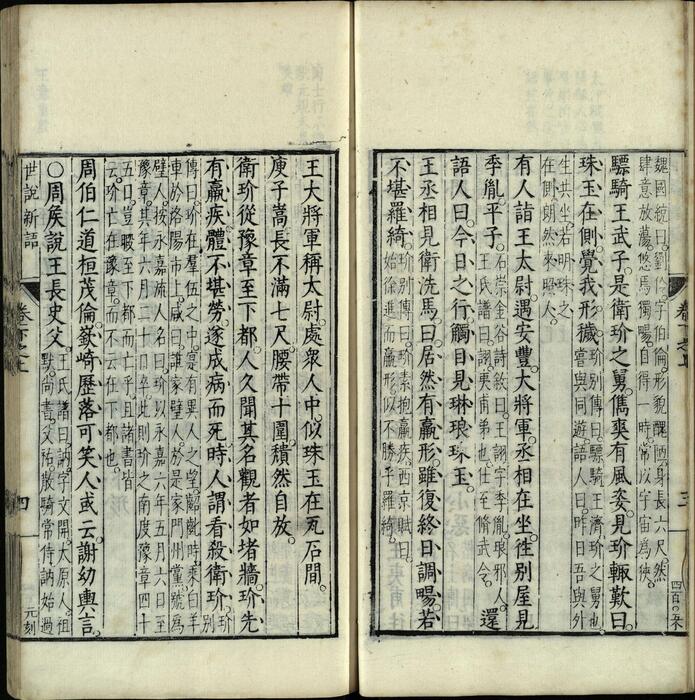 魏國統曰劉伶字伯倫形貌醜陋身長六尺然
肆意放蕩悠焉獨暢自得一時常以宇宙為狹
驃騎王武子是衛玠之舅儁爽有風姿見玠輙歎曰
珠玉在側覺我形穢玠別傳曰驃騎王濟玠之舅也
嘗與同遊語人曰昨日吾與外
生共坐若明珠之
在側朗然來照人
有人詣王太尉遇安豐大將軍丞相在坐徃別屋見
季胤平子石崇金谷詩敘曰王詡字季胤琅邪人
王氏譜曰詡夷甫弟也仕至脩武令還
語人曰今日之行觸目見琳琅珠玉
王丞相見衛洗馬曰居然有羸形雖復終日調暢若
不堪羅綺玠別傳曰玠素抱羸疾西京賦曰
始徐進而羸形似不勝乎羅綺
卷下之上
三
王大將軍稱太尉處衆人中似珠玉在瓦石間
庾子嵩長不滿七尺腰帶十圍穨然自放
衛玠從豫章至下都人久聞其名觀者如堵牆玠先
有羸疾體不堪勞遂成病而死時人謂看殺衛玠玠別
傳曰玠在羣伍之中寔有異人之望齠齔時乘白羊
車於洛陽市上咸曰誰家璧人於是家門州黨號為
璧人按永嘉流人名曰玠以永嘉六年五月六日至
豫章其年六月二十日卒此則玠之南度豫章四十
五日豈暇至下都而亡乎且諸書皆
云玠亡在豫章而不云在下都也
周伯仁道桓茂倫嶔崎歷落可笑人或云謝幼輿言
○周矦說王長史父王氏譜曰訥字文開太原人祖
默尚書父祐散騎常侍訥始過
世說新語
卷下之上
四
元刻